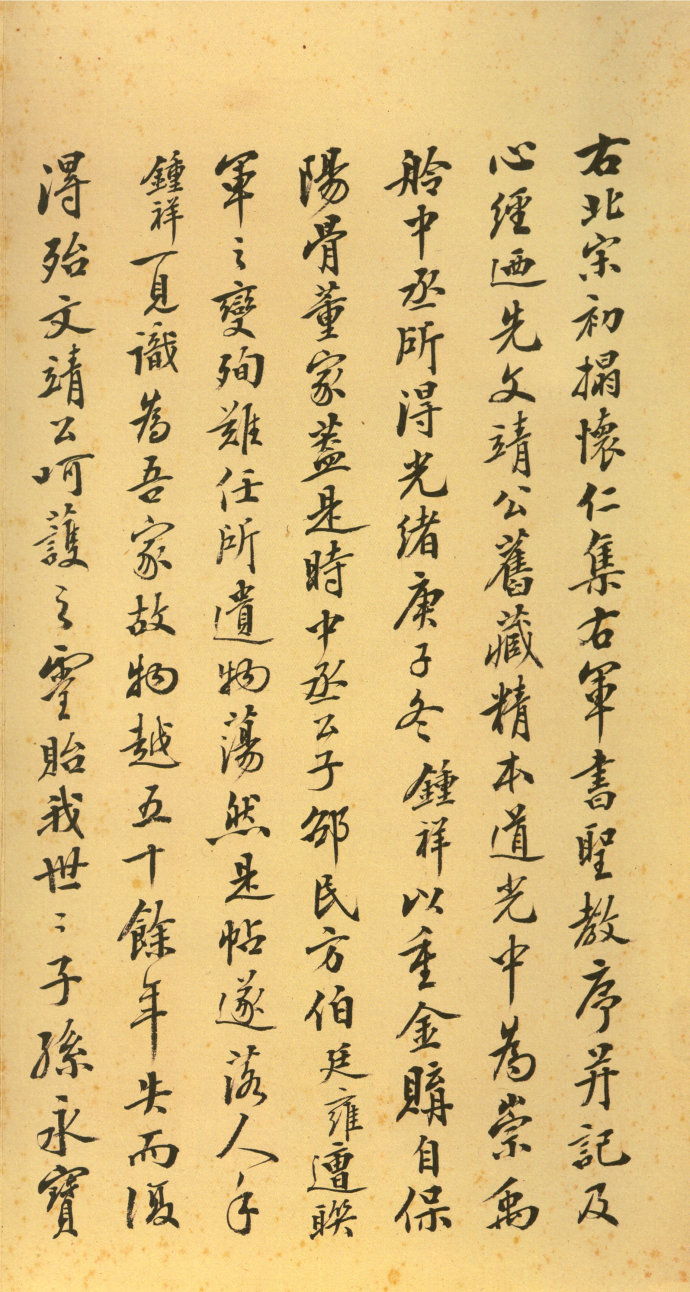 右北宋初搨懷仁集右軍書聖教序并記及
心經迺先文靖公舊藏精本道光中為崇禹
舲中丞所得光緒庚子冬鍾祥以重金購自保
陽骨董家葢是時中丞公子邵民方伯廷雍遭聯
軍之變殉難任所遺物蕩然是帖遂落人手
鍾祥一見識為吾家故物越五十餘年失而復
得殆文靖公呵護之靈貽我世〻子孫永寶